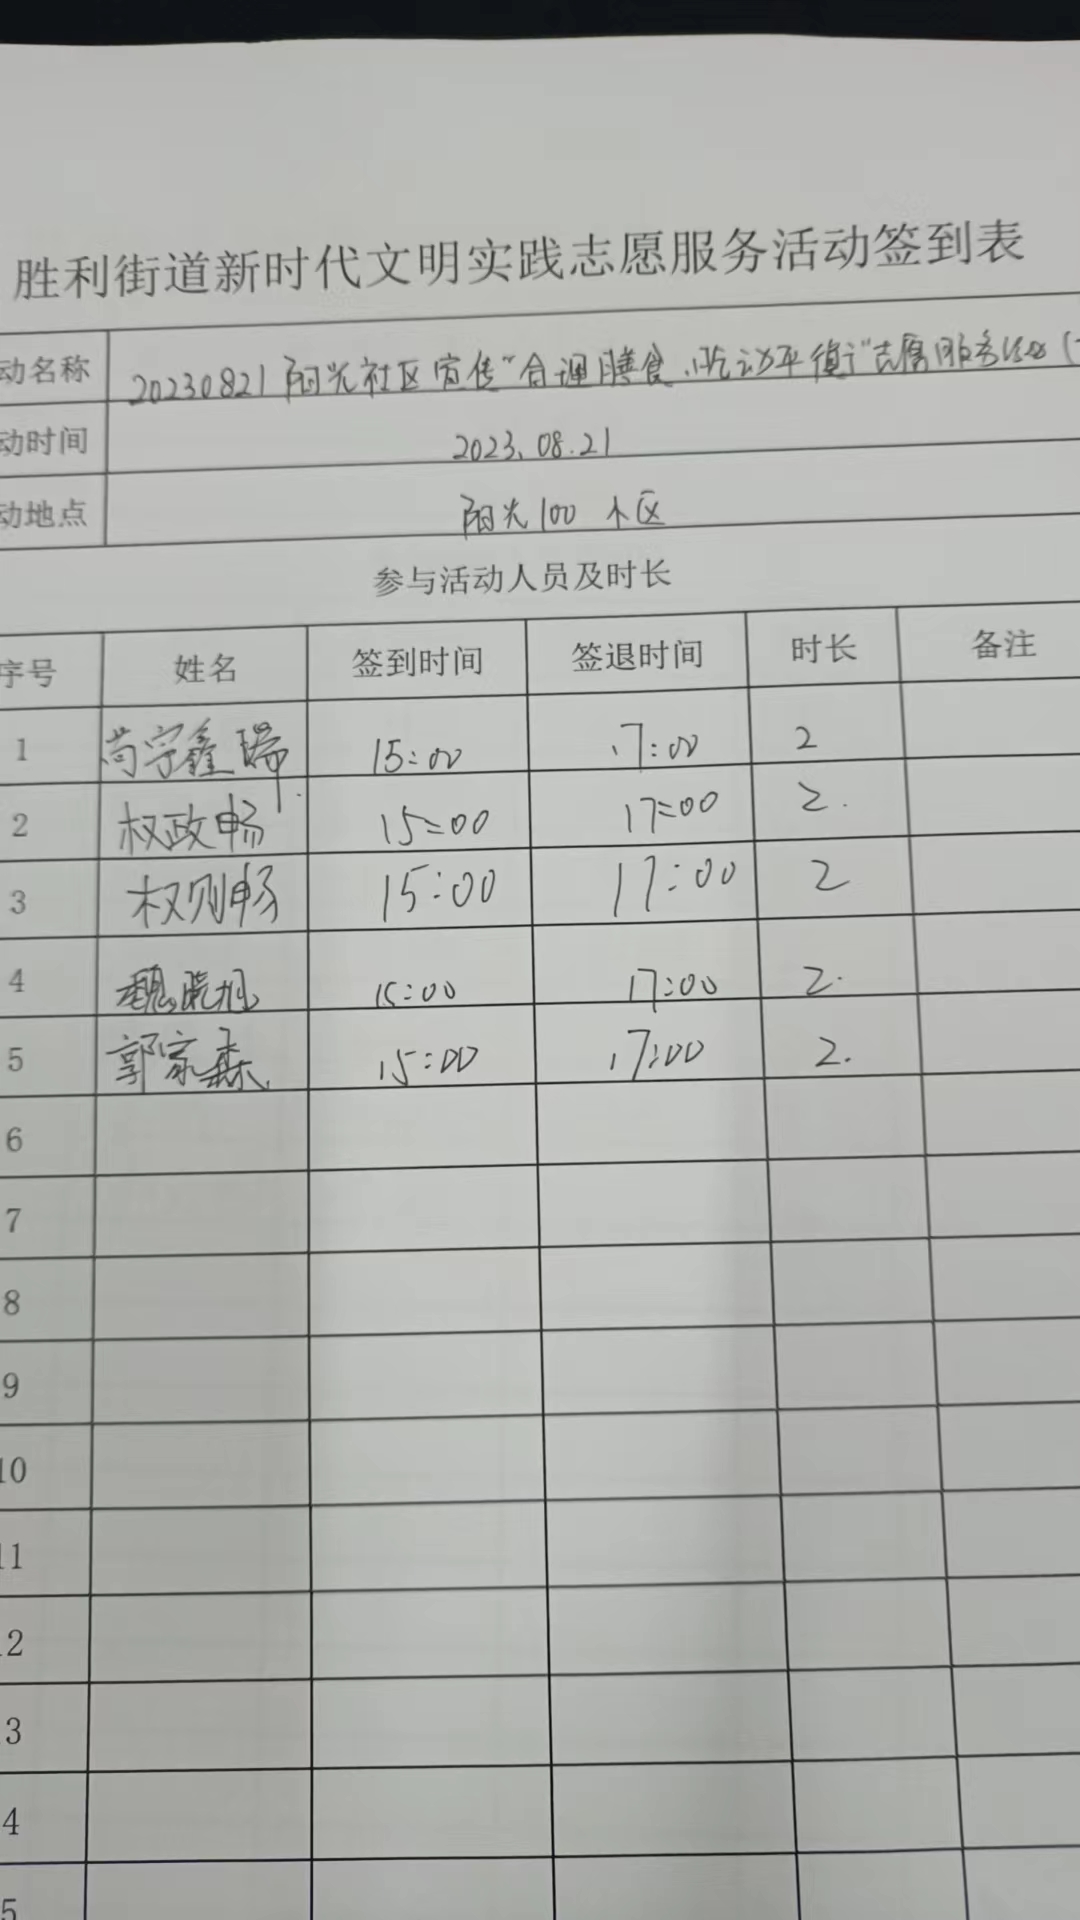 胜利街道新时代文明实践志愿服务活动签到表
动名称 20230821阳光社区宣传"合理膳食、吃动平衡"志愿服务活动(
动时间 2023.08.21
动地点 阳光100小区
参与活动人员及时长
序号 姓名 签到时间 签退时间 时长 备注
1 尚宇鑫瑞 15:00 17:00 2
2 权政畅 15:00 17:00 2.
3 权则畅 15:00 17:00 2
4 魏晓旭 15:00 17:00 2.
5 郭家森 15:00 17:00 2.
6
7
8
9
10
11
12
3
4
5